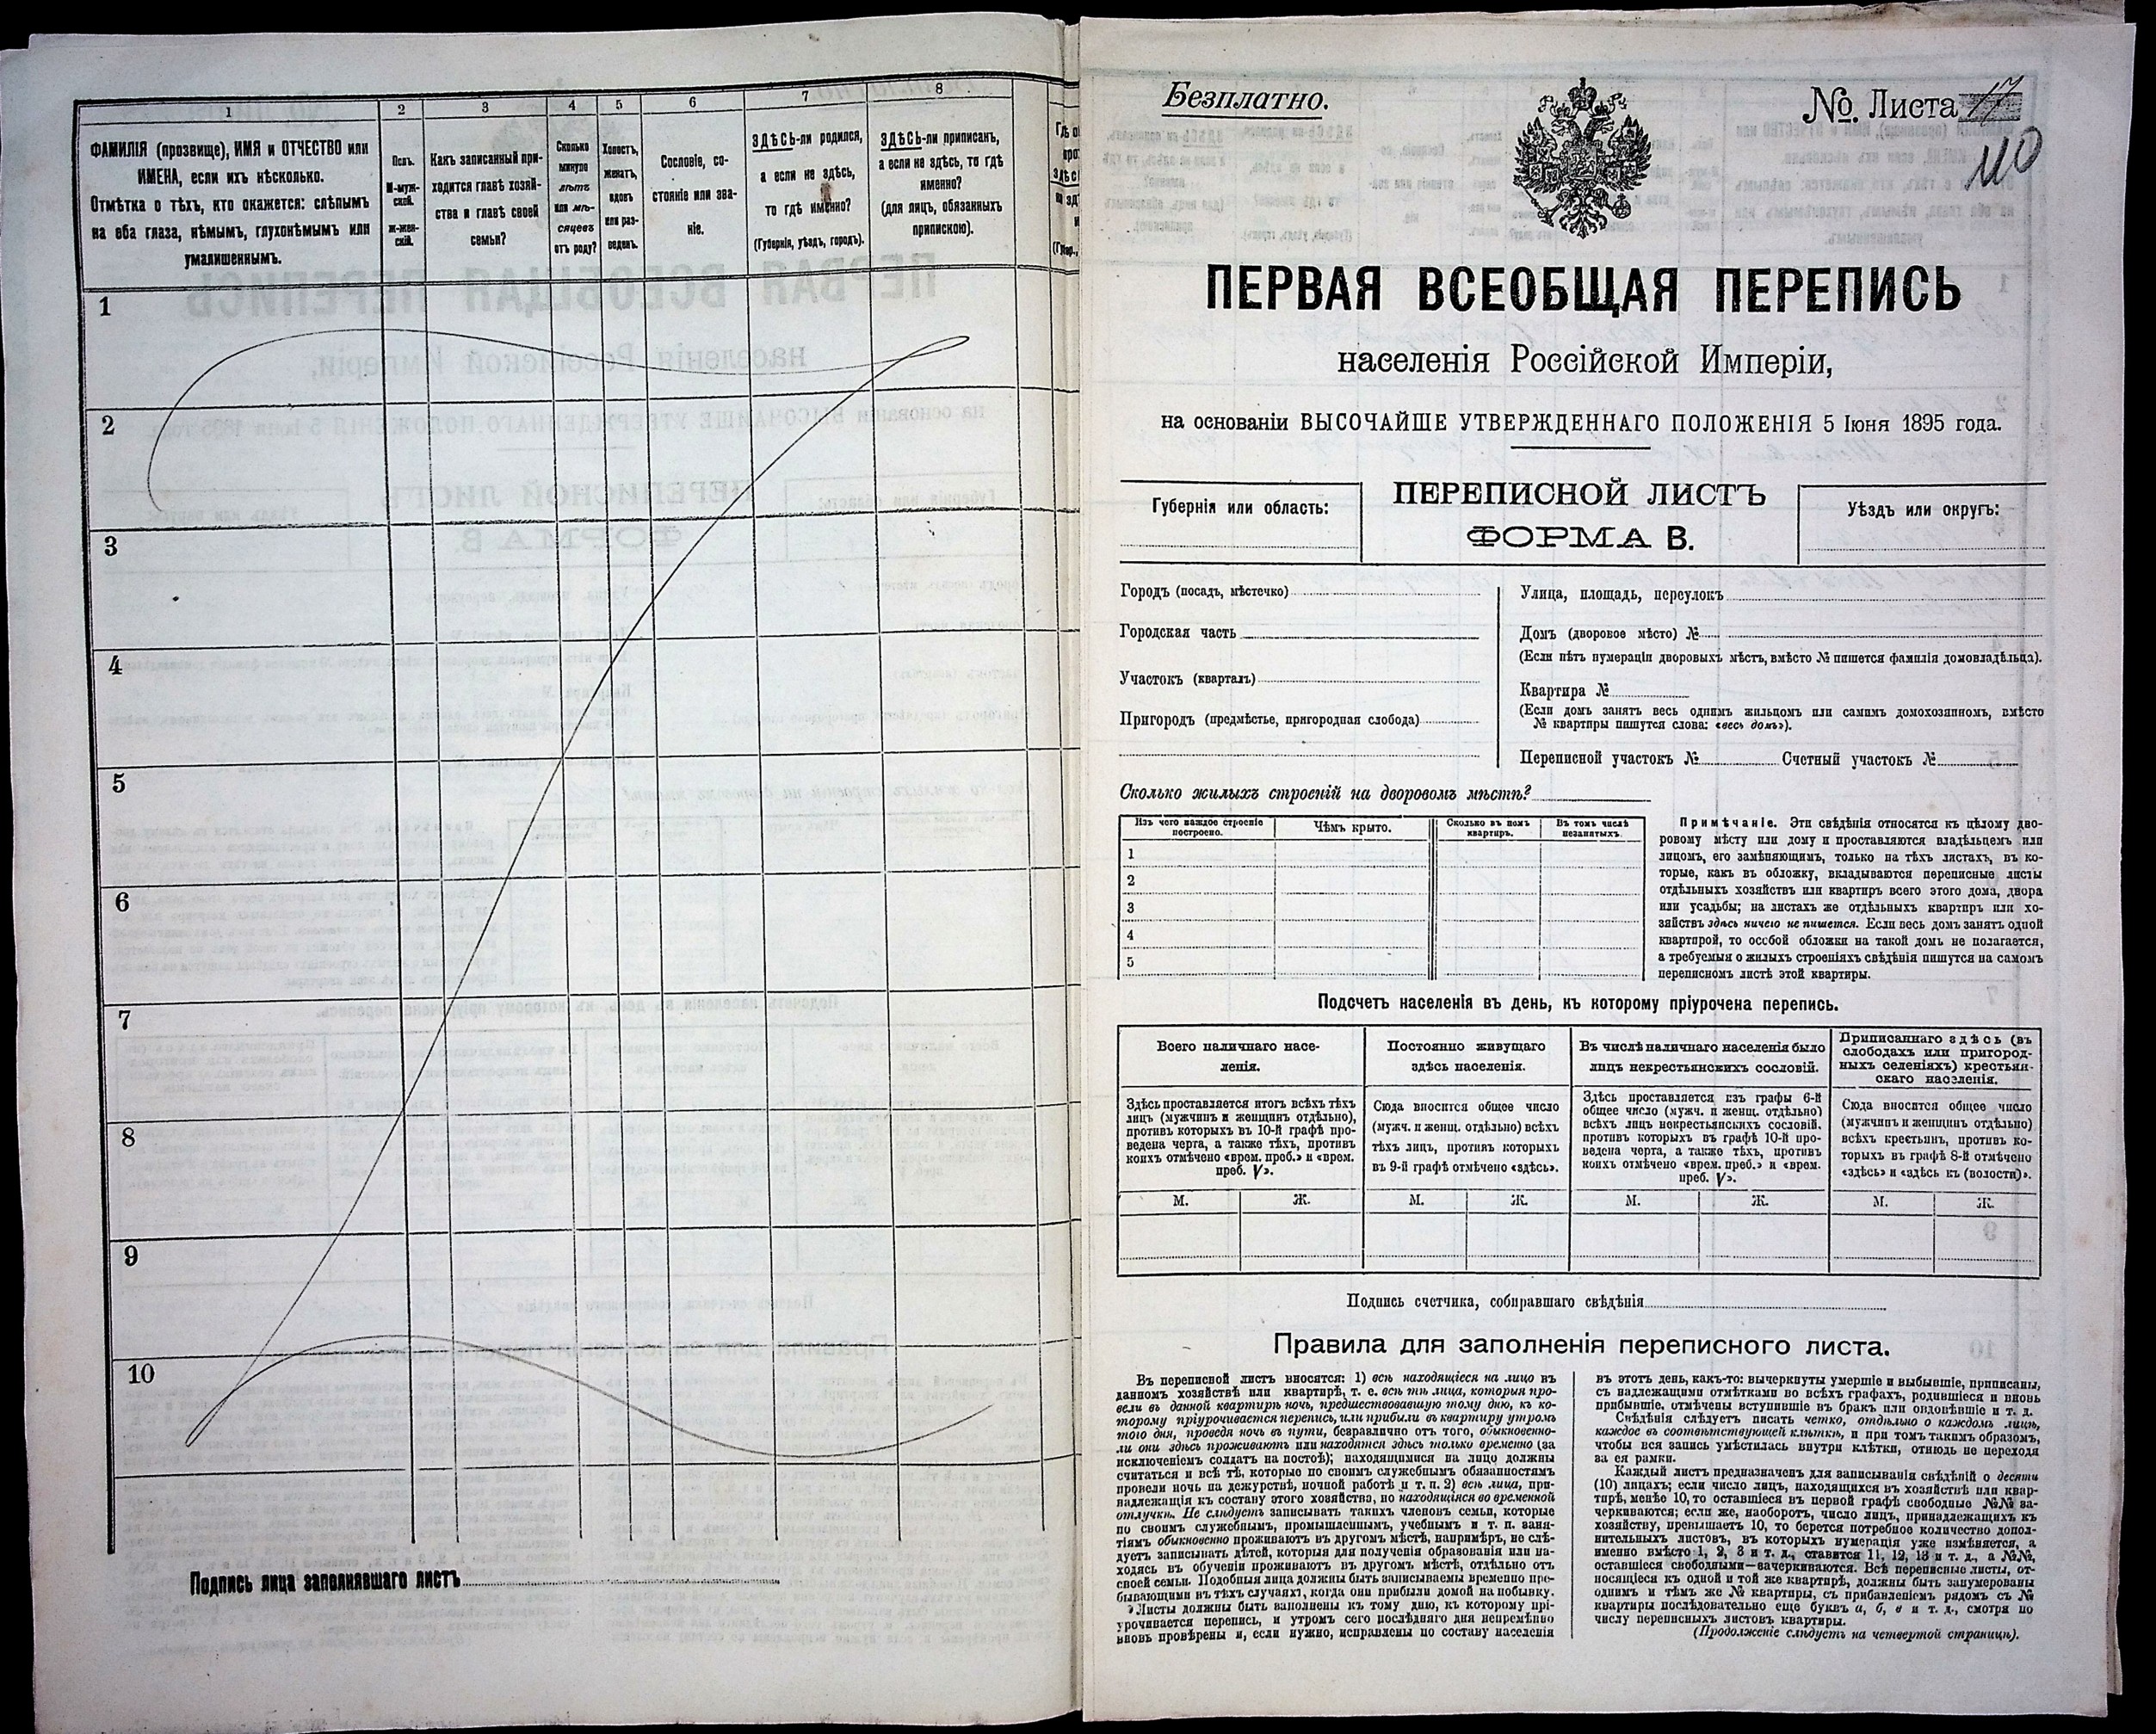 1
2
3
4
5
6
7
8
ФАМИЛІЯ (прозвище), ИМЯ и ОТЧЕСТВО или
ИМЕНА, если ихъ нѣсколько.
Отмѣтка о тѣхъ, кто окажется: слѣпымъ
на оба глаза, нѣмымъ, глухонѣмымъ или
умалишеннымъ.
Полъ.
М-муж-
ской.
Ж-жен-
скій.
Какъ записанный при-
ходится главѣ хозяй-
ства и главѣ своей
семьи?
Сколько
минуло
лѣтъ
или мѣ-
сяцевъ
отъ роду?
Холостъ,
женатъ,
вдовъ
или раз-
веденъ.
Сословіе, со-
стояніе или зва-
ніе.
ЗДѢСЬ-ли родился,
а если не здѣсь,
то гдѣ именно?
(Губернія, уѣздъ, городъ).
ЗДѢСЬ-ли приписанъ,
а если не здѣсь, то гдѣ
именно?
(для лицъ, обязанныхъ
припискою).
1
2
3
4
5
6
7
8
9
10
Подпись лица заполнявшаго листъ
Безплатно.
№. Листа 17
110
ПЕРВАЯ ВСЕОБЩАЯ ПЕРЕПИСЬ
населенія Россійской Имперіи,
на основаніи ВЫСОЧАЙШЕ УТВЕРЖДЕННАГО ПОЛОЖЕНІЯ 5 Іюня 1895 года.
Губернія или область:
ПЕРЕПИСНОЙ ЛИСТЪ
ФОРМА В.
Уѣздъ или округъ:
Городъ (посадъ, мѣстечко)
Городская часть
Участокъ (кварталъ)
Пригородъ (предмѣстье, пригородная слобода)
Улица, площадь, переулокъ
Домъ (дворовое мѣсто) №
(Если нѣтъ нумераціи дворовыхъ мѣстъ, вмѣсто № пишется фамилія домовладѣльца).
Квартира №
(Если домъ занятъ весь однимъ жильцомъ или самимъ домохозяиномъ, вмѣсто
№ квартиры пишутся слова: «весь домъ»).
Переписной участокъ № Счетный участокъ №
Сколько жилыхъ строеній на дворовомъ мѣстѣ?
Изъ чего каждое строеніе
построено.
Чѣмъ крыто.
Сколько въ немъ
квартиръ.
Въ томъ числѣ
незанятыхъ.
1
2
3
4
5
Примѣчаніе. Эти свѣдѣнія относятся къ цѣлому дво-
ровому мѣсту или дому и проставляются владѣльцемъ или
лицомъ, его замѣняющимъ, только на тѣхъ листахъ, въ ко-
торые, какъ въ обложку, вкладываются переписные листы
отдѣльныхъ хозяйствъ или квартиръ всего этого дома, двора
или усадьбы; на листахъ же отдѣльныхъ квартиръ или хо-
зяйствъ здѣсь ничего не пишется. Если весь домъ занятъ одной
квартирой, то особой обложки на такой домъ не полагается,
а требуемыя о жилыхъ строеніяхъ свѣдѣнія пишутся на самомъ
переписномъ листѣ этой квартиры.
Подсчетъ населенія въ день, къ которому пріурочена перепись.
Всего наличнаго насе-
ленія.
Здѣсь проставляется итогъ всѣхъ тѣхъ
лицъ (мужчинъ и женщинъ отдѣльно),
противъ которыхъ въ 10-й графѣ про-
ведена черта, а также тѣхъ, противъ
коихъ отмѣчено «врем. преб.» и «врем.
преб. V».
Постоянно живущаго
здѣсь населенія.
Сюда вносится общее число
(мужч. и женщ. отдѣльно) всѣхъ
тѣхъ лицъ, противъ которыхъ
въ 9-й графѣ отмѣчено «здѣсь».
Въ числѣ наличнаго населенія было
лицъ некрестьянскихъ сословій.
Здѣсь проставляется изъ графы 6-й
общее число (мужч. и женщ. отдѣльно)
всѣхъ лицъ некрестьянскихъ сословій,
противъ которыхъ въ графѣ 10-й про-
ведена черта, а также тѣхъ, противъ
коихъ отмѣчено «врем. преб.» и «врем.
преб. V».
Приписаннаго здѣсь (въ
слободахъ или пригород-
ныхъ селеніяхъ) крестьян-
скаго населенія.
Сюда вносится общее число
(мужчинъ и женщинъ отдѣльно)
всѣхъ крестьянъ, противъ ко-
торыхъ въ графѣ 8-й отмѣчено
«здѣсь» и «здѣсь къ (волости)».
М. Ж. М. Ж. М. Ж. М. Ж.
Подпись счетчика, собиравшаго свѣдѣнія
Правила для заполненія переписного листа.
Въ переписной листъ вносятся: 1) всѣ находящіеся на лицо въ
данномъ хозяйствѣ или квартирѣ, т. е. всѣ тѣ лица, которыя про-
вели въ данной квартирѣ ночь, предшествовавшую тому дню, къ ко-
торому пріурочивается перепись, или прибыли въ квартиру утромъ
того дня, проведя ночь въ пути, безразлично отъ того, обыкновенно-
ли они здѣсь проживаютъ или находятся здѣсь только временно (за
исключеніемъ солдатъ на постоѣ); находящимися на лицо должны
считаться и всѣ тѣ, которые по своимъ служебнымъ обязанностямъ
провели ночь на дежурствѣ, ночной работѣ и т. п. 2) всѣ лица, при-
надлежащія къ составу этого хозяйства, но находящіяся во временной
отлучкѣ. Не слѣдуетъ записывать такихъ членовъ семьи, которые
по своимъ служебнымъ, промышленнымъ, учебнымъ и т. п. заня-
тіямъ обыкновенно проживаютъ въ другомъ мѣстѣ, напримѣръ, не слѣ-
дуетъ записывать дѣтей, которыя для полученія образованія или на-
ходясь въ обученіи проживаютъ въ другомъ мѣстѣ, отдѣльно отъ
своей семьи. Подобныя лица должны быть записываемы временно пре-
бывающими въ тѣхъ случаяхъ, когда они прибыли домой на побывку.
Листы должны быть заполнены къ тому дню, къ которому прі-
урочивается перепись, и утромъ сего послѣдняго дня непремѣнно
вновь провѣрены и, если нужно, исправлены по составу населенія
въ этотъ день, какъ-то: вычеркнуты умершіе и выбывшіе, приписаны,
съ надлежащими отмѣтками во всѣхъ графахъ, родившіеся и вновь
прибывшіе, отмѣчены вступившіе въ бракъ или овдовѣвшіе и т. д.
Свѣдѣнія слѣдуетъ писать четко, отдѣльно о каждомъ лицѣ,
каждое въ соотвѣтствующей клѣткѣ, и при томъ такимъ образомъ,
чтобы вся запись умѣстилась внутри клѣтки, отнюдь не переходя
за ея рамки.
Каждый листъ предназначенъ для записыванія свѣдѣній о десяти
(10) лицахъ; если число лицъ, находящихся въ хозяйствѣ или квар-
тирѣ, менѣе 10, то оставшіеся въ первой графѣ свободные №№ за-
черкиваются; если же, наоборотъ, число лицъ, принадлежащихъ къ
хозяйству, превышаетъ 10, то берется потребное количество допол-
нительныхъ листовъ, въ которыхъ нумерація уже измѣняется, а
именно вмѣсто 1, 2, 3 и т. д., ставится 11, 12, 13 и т. д., а №№,
оставшіеся свободными—зачеркиваются. Всѣ переписные листы, от-
носящіеся къ одной и той же квартирѣ, должны быть занумерованы
однимъ и тѣмъ же № квартиры, съ прибавленіемъ рядомъ съ №
квартиры послѣдовательно еще буквъ а, б, в и т. д., смотря по
числу переписныхъ листовъ квартиры.
(Продолженіе слѣдуетъ на четвертой страницѣ).